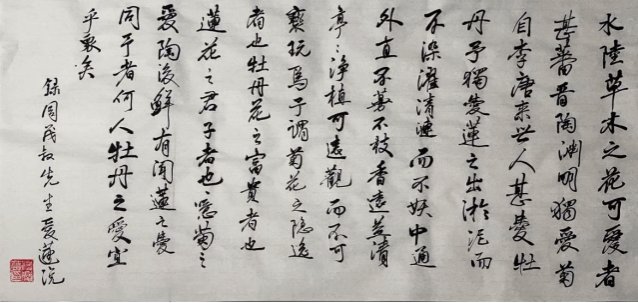 水陸草木之花可愛者
甚蕃晉陶淵明獨愛菊
自李唐来世人甚愛牡
丹予獨愛蓮之出淤泥而
不染濯清漣而不妖中通
外直不蔓不枝香遠益清
亭〻净植可遠觀而不可
褻玩焉予謂菊花之隐逸
者也牡丹花之富貴者也
蓮花之君子者也噫菊之
愛陶後鮮有聞蓮之愛
同予者何人牡丹之愛宜
乎眾矣
錄周茂叔先生愛蓮説